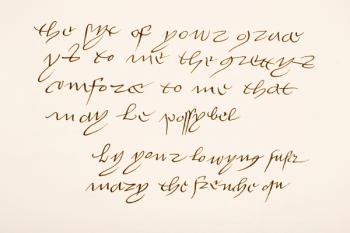 the syt of your grace
yt to me the gretyst
comfort to me that
may be possybel
by your lowyng suster
mary the frenche qu